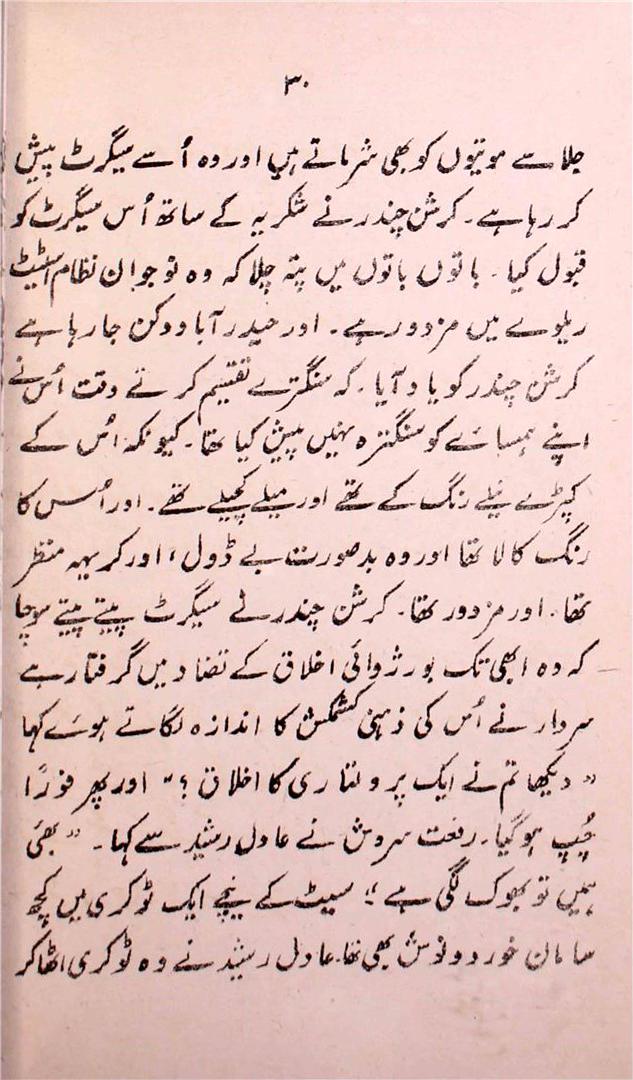 ۳۰
جلا سے موتیوں کو بھی شرماتے ہیں اور وہ اُسے سیگرٹ پیش
کر رہا ہے۔ کرشن چندر نے شکریہ کے ساتھ اُس سیگرٹ کو
قبول کیا۔ باتوں باتوں میں پتہ چلا کہ وہ نوجوان نظام اسٹیٹ
ریلوے میں مزدور ہے۔ اور حیدر آباد دکن جا رہا ہے
کرشن چندر کو یاد آیا۔ کہ سنگترے تقسیم کرتے وقت اُس نے
اپنے ہمسائے کو سنگترہ نہیں پیش کیا تھا۔ کیونکہ اُس کے
کپڑے نیلے رنگ کے تھے اور میلے کچیلے تھے۔ اور اُس کا
رنگ کالا تھا اور وہ بدصورت بے ڈول، اور کریہہ منظر
تھا۔ اور مزدور تھا۔ کرشن چندر نے سیگرٹ پیتے پیتے سوچا
کہ وہ ابھی تک بورژوائی اخلاق کے تضاد میں گرفتار ہے
سردار نے اُس کی ذہنی کشمکش کا اندازہ لگاتے ہوئے کہا
”دیکھا تم نے ایک پرولتاری کا اخلاق؟“ اور پھر فوراً
چُپ ہو گیا۔ رفعت سروش نے عادل رشید سے کہا۔ ”بھئی
ہمیں تو بھوک لگی ہے“ سیٹ کے نیچے ایک ٹوکری میں کچھ
سامان خورد و نوش بھی تھا۔ عادل رشید نے وہ ٹوکری اٹھا کر